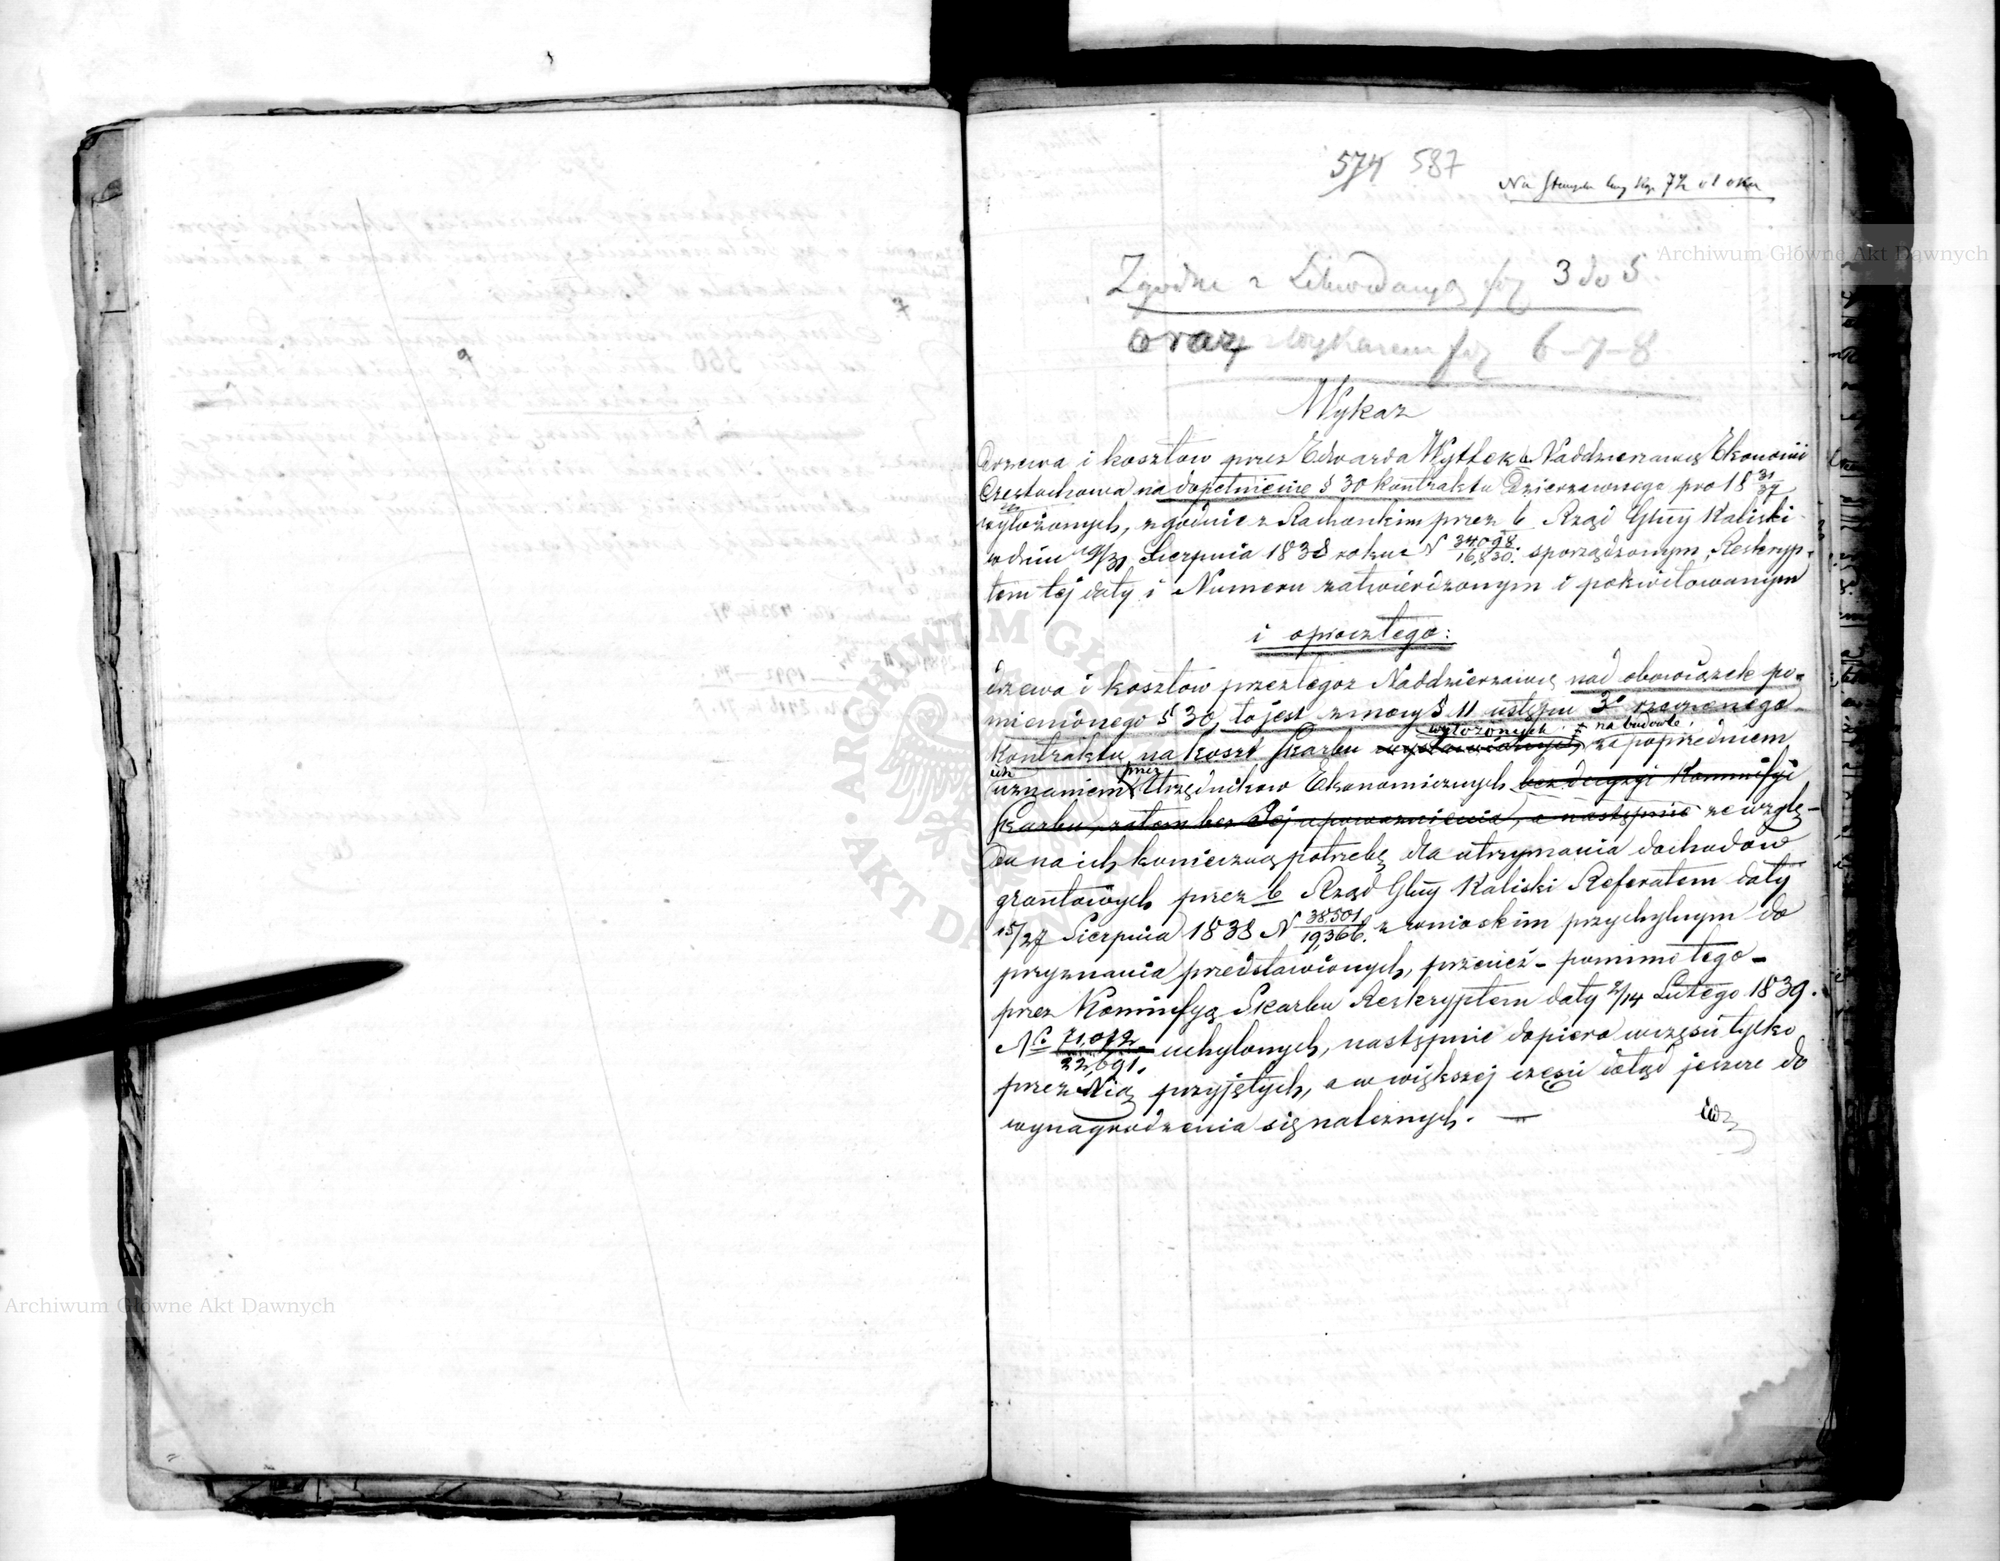 574 587
Na
Zgodne z Likwidacyą fog 3 do 5.
oraz z wykazem fog 6-7-8
Wykaz
drzewa i kosztów przez Edwarda Naddzierzawcę Ekonomii
Częstochowa na dopełnienie § 30 kontraktu Dzierzawnego pro 18 31/37
wyłożonych, zgodnie z Rachunkiem przez b. Rząd Głny Kaliski
w dniu 19/31 Sierpnia 1838 roku N 34,098./16,830. sporządzonym, Reskryp-
tem tej daty i Numeru zatwierdzonym i pokwitowanym
i oprócz tego:
drzewa i kosztów przez tegoz Naddzierzawcę nad obowiązek po-
mienionego § 30, to jest z mocy § 11 ustępu 3o
wyłożonych + na budowle
Kontraktu, na koszt Skarbu za poprzedniem
ich przez
uznaniem Urzędników Ekonomicznych bez decyzyi Kommissyi
Skarbu, zatem bez Jej upoważnienia, a następnie ze wzglę-
du na ich konieczną potrzebę dla utrzymania dochodów
gruntowych przez b Rząd Głny Kaliski Referatem daty
15/27 Sierpnia 1838 N 38,501./19,366. z wnioskim przychylnym do
przyznania przedstawionych, przecież - pomimo tego -
przez Kommissyą Skarbu Reskryptem daty 2/14 Lutego 1839.
No 71,072/22,691. uchylonych, następnie dopiero w części tylko
przez Nią przyjętych, a w większej części dotąd jeszcze do
wynagrodzenia się należnych. —
Archiwum Główne Akt Dawnych
Archiwum Główne Akt Dawnych
ARCHIWUM GŁÓWNE AKT DAWNYCH